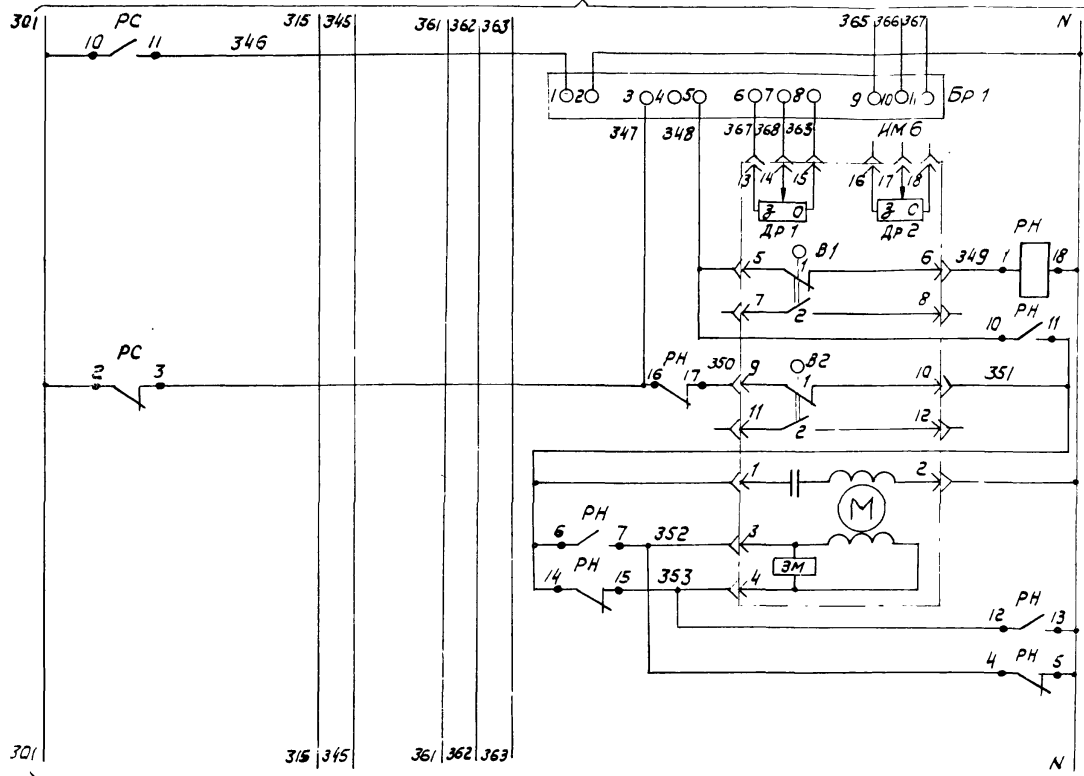 301 315 345 361 362 363 365 366 367 N
РС
10 11 346
1 2 3 4 5 6 7 8 9 10 11 Бр 1
347 348 367 368 365 ИМ 6
13 14 15 16 17 18
З О З С
Др 1 Др 2
РН
В1
5 1 6 349 1 18
7 2 8
РН
10 11
РС
2 3
РН
16 17 350
В2
9 1 10 351
11 2 12
1 2
М
РН
6 7 352 3
ЭМ
РН
14 15 353 4
РН
12 13
РН
4 5
301 315 345 361 362 363 N